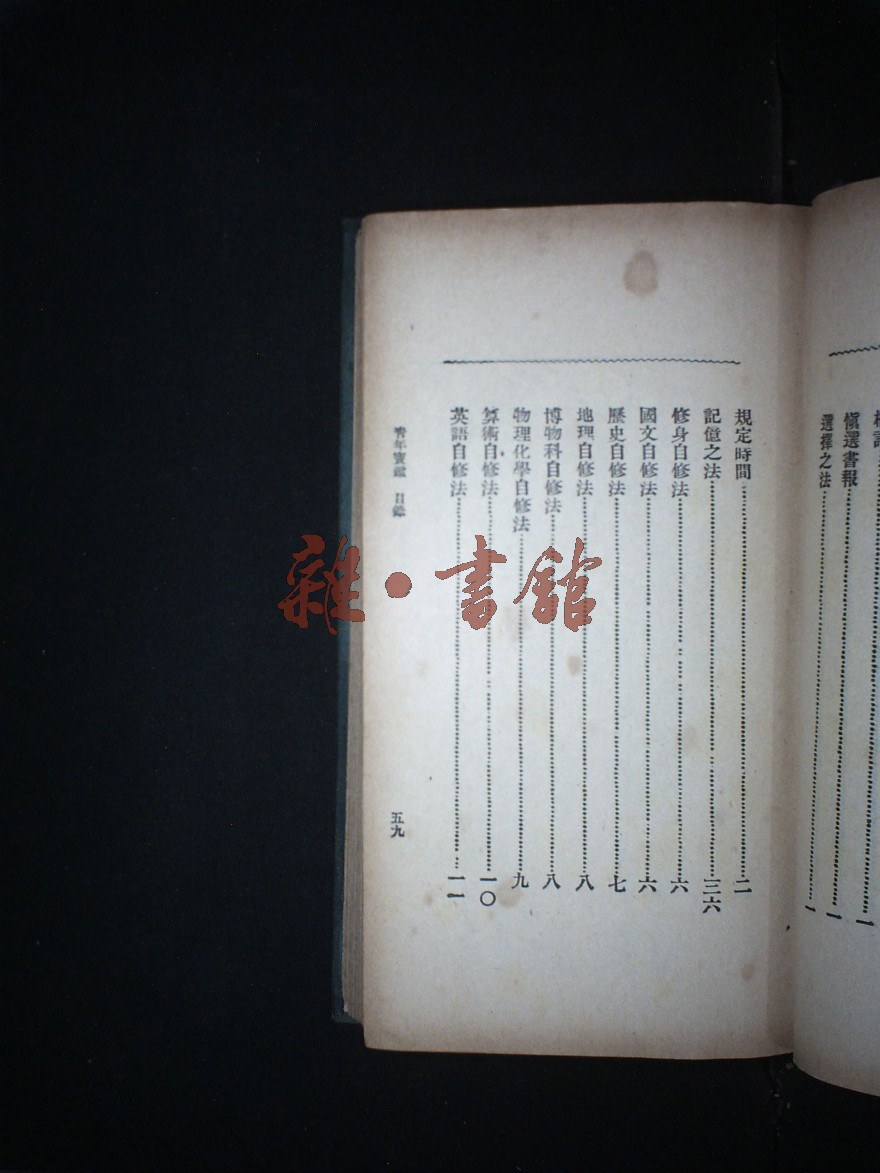 慎選書報……一
選擇之法……一
規定時間……二
記憶之法……三六
修身自修法……六
國文自修法……六
歷史自修法……七
地理自修法……八
博物科自修法……八
物理化學自修法……九
算術自修法……一〇
英語自修法……一一
青年寶鑑 目錄
五九
雜·書館